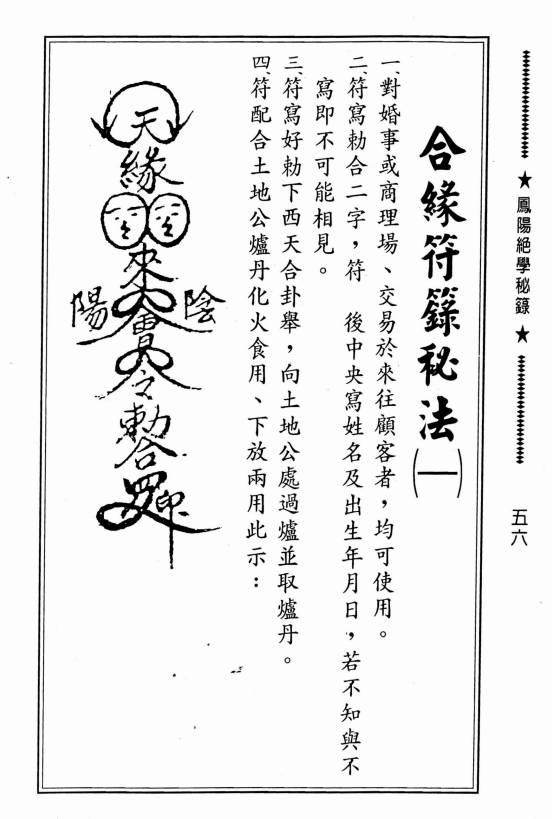 ★鳳陽絕學秘籙★
五六
合緣符籙秘法(一)
一、對婚事或商理場、交易於來往顧客者，均可使用。
二、符寫勅合二字，符　後中央寫姓名及出生年月日，若不知與不
寫即不可能相見。
三、符寫好勅下西天合卦舉，向土地公處過爐並取爐丹。
四、符配合土地公爐丹化火食用、下放兩用此示：
天
緣
來
陽
陰
會
令
勅
合